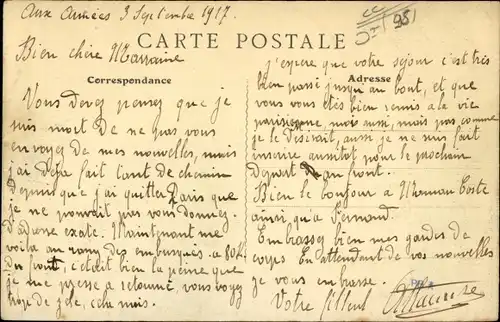 Aux Armées 3 Septembre 1917.
951
CARTE POSTALE
Bien chère Marraine
Correspondance
Vous devez pensez que je
suis mort de ne pas vous
envoyez de mes nouvelles, mais
j'ai déjà fait tant de chemin
depuis que j'ai quitter Paris que
je ne pouvait pas vous donnez
d'adresse exate. Maintenant me
voila au rang des embusqués a 80 K.
du front, c'était bien la peine que
je me presse a retourné, vous voyez
trop de zèle, cela nuis.
j'espère que votre sejour c'est très
Adresse
bien passé jusqu'au bout, et que
vous vous êtes bien remis a la vie
parisienne, mais aussi, mais pas comme
je le désirait, aussi je me suis fait
inscrire aussitot pour le prochain
départ au front.
Bien le bonjour a Maman
ainsi qu'a Fernand.
Embrassez bien mes gardes de
corps. En attendant de vos nouvelles
je vous embrasse.
Votre filleul